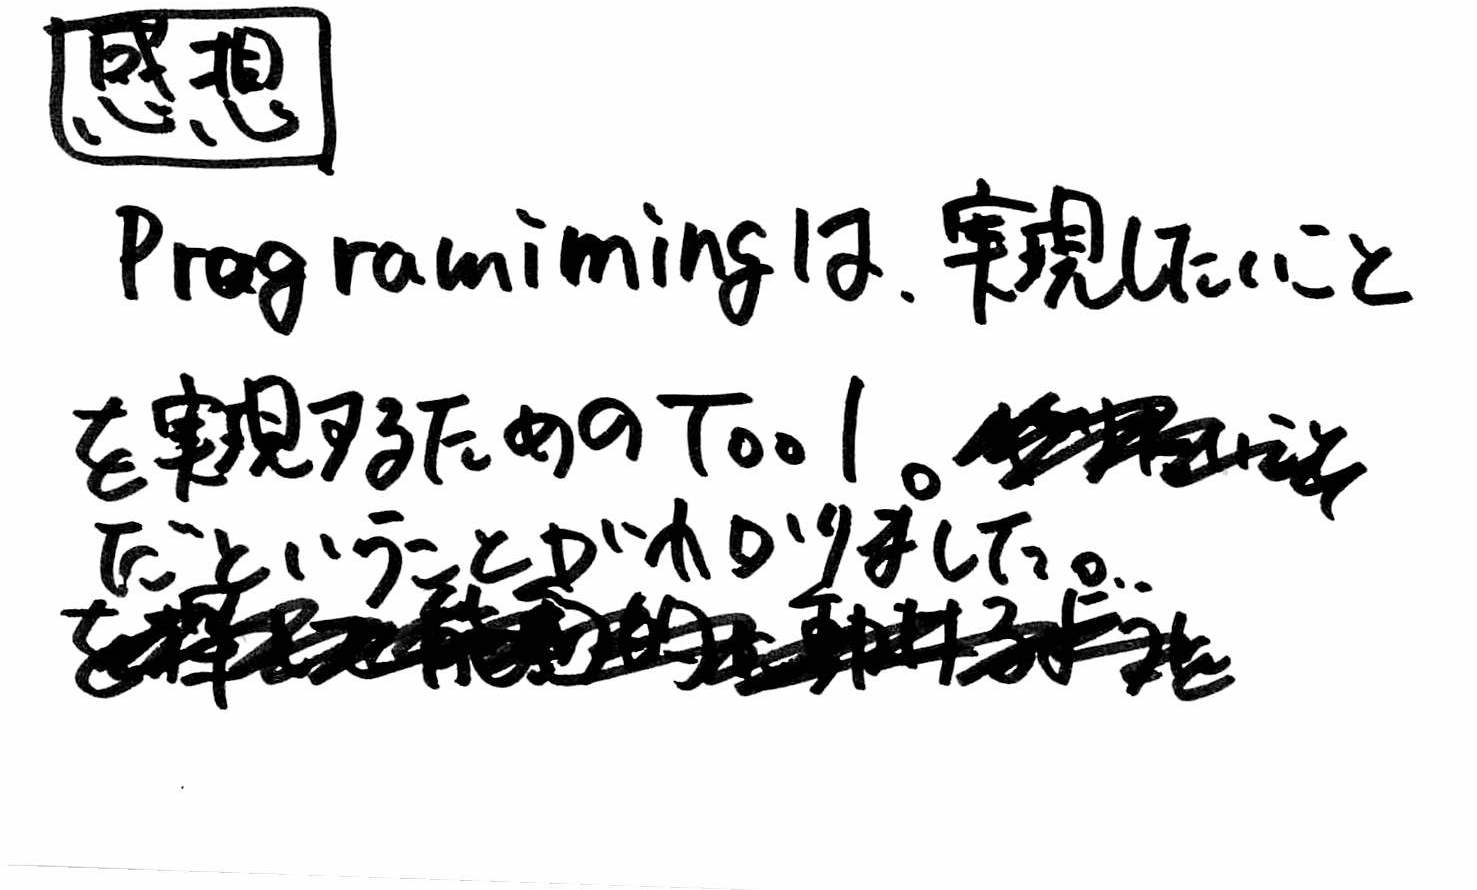 感想
Programimingは、実現したいこと
を実現するためのTool。
だということがわかりました。..